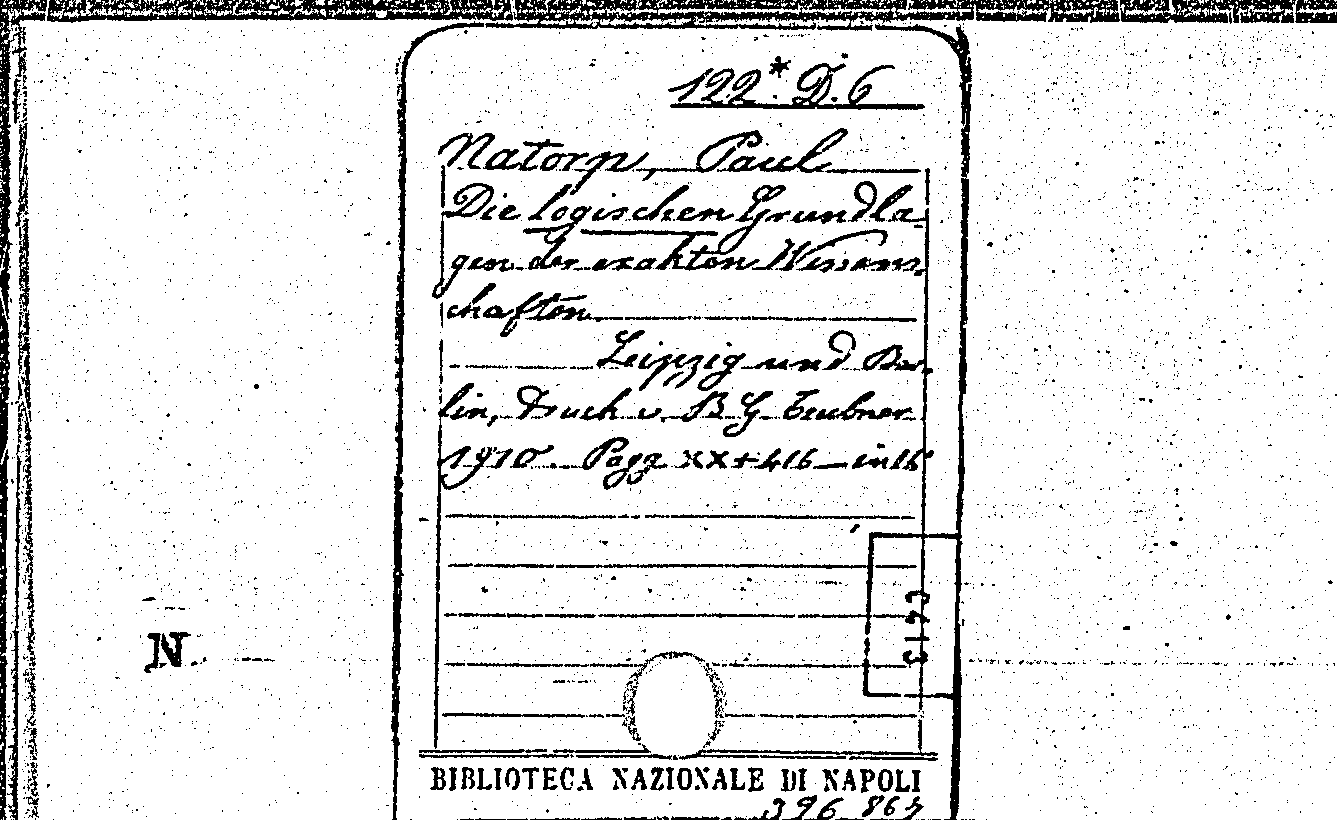 122.* D. 6
Natorp, Paul
Die logischen Grundla-
gen der exakten Wissens-
chaften
Leipzig und Ber-
lin, Druck v. B G Teubner
1910. Pagg XX+416 — in 16°
N.
BIBLIOTECA NAZIONALE DI NAPOLI